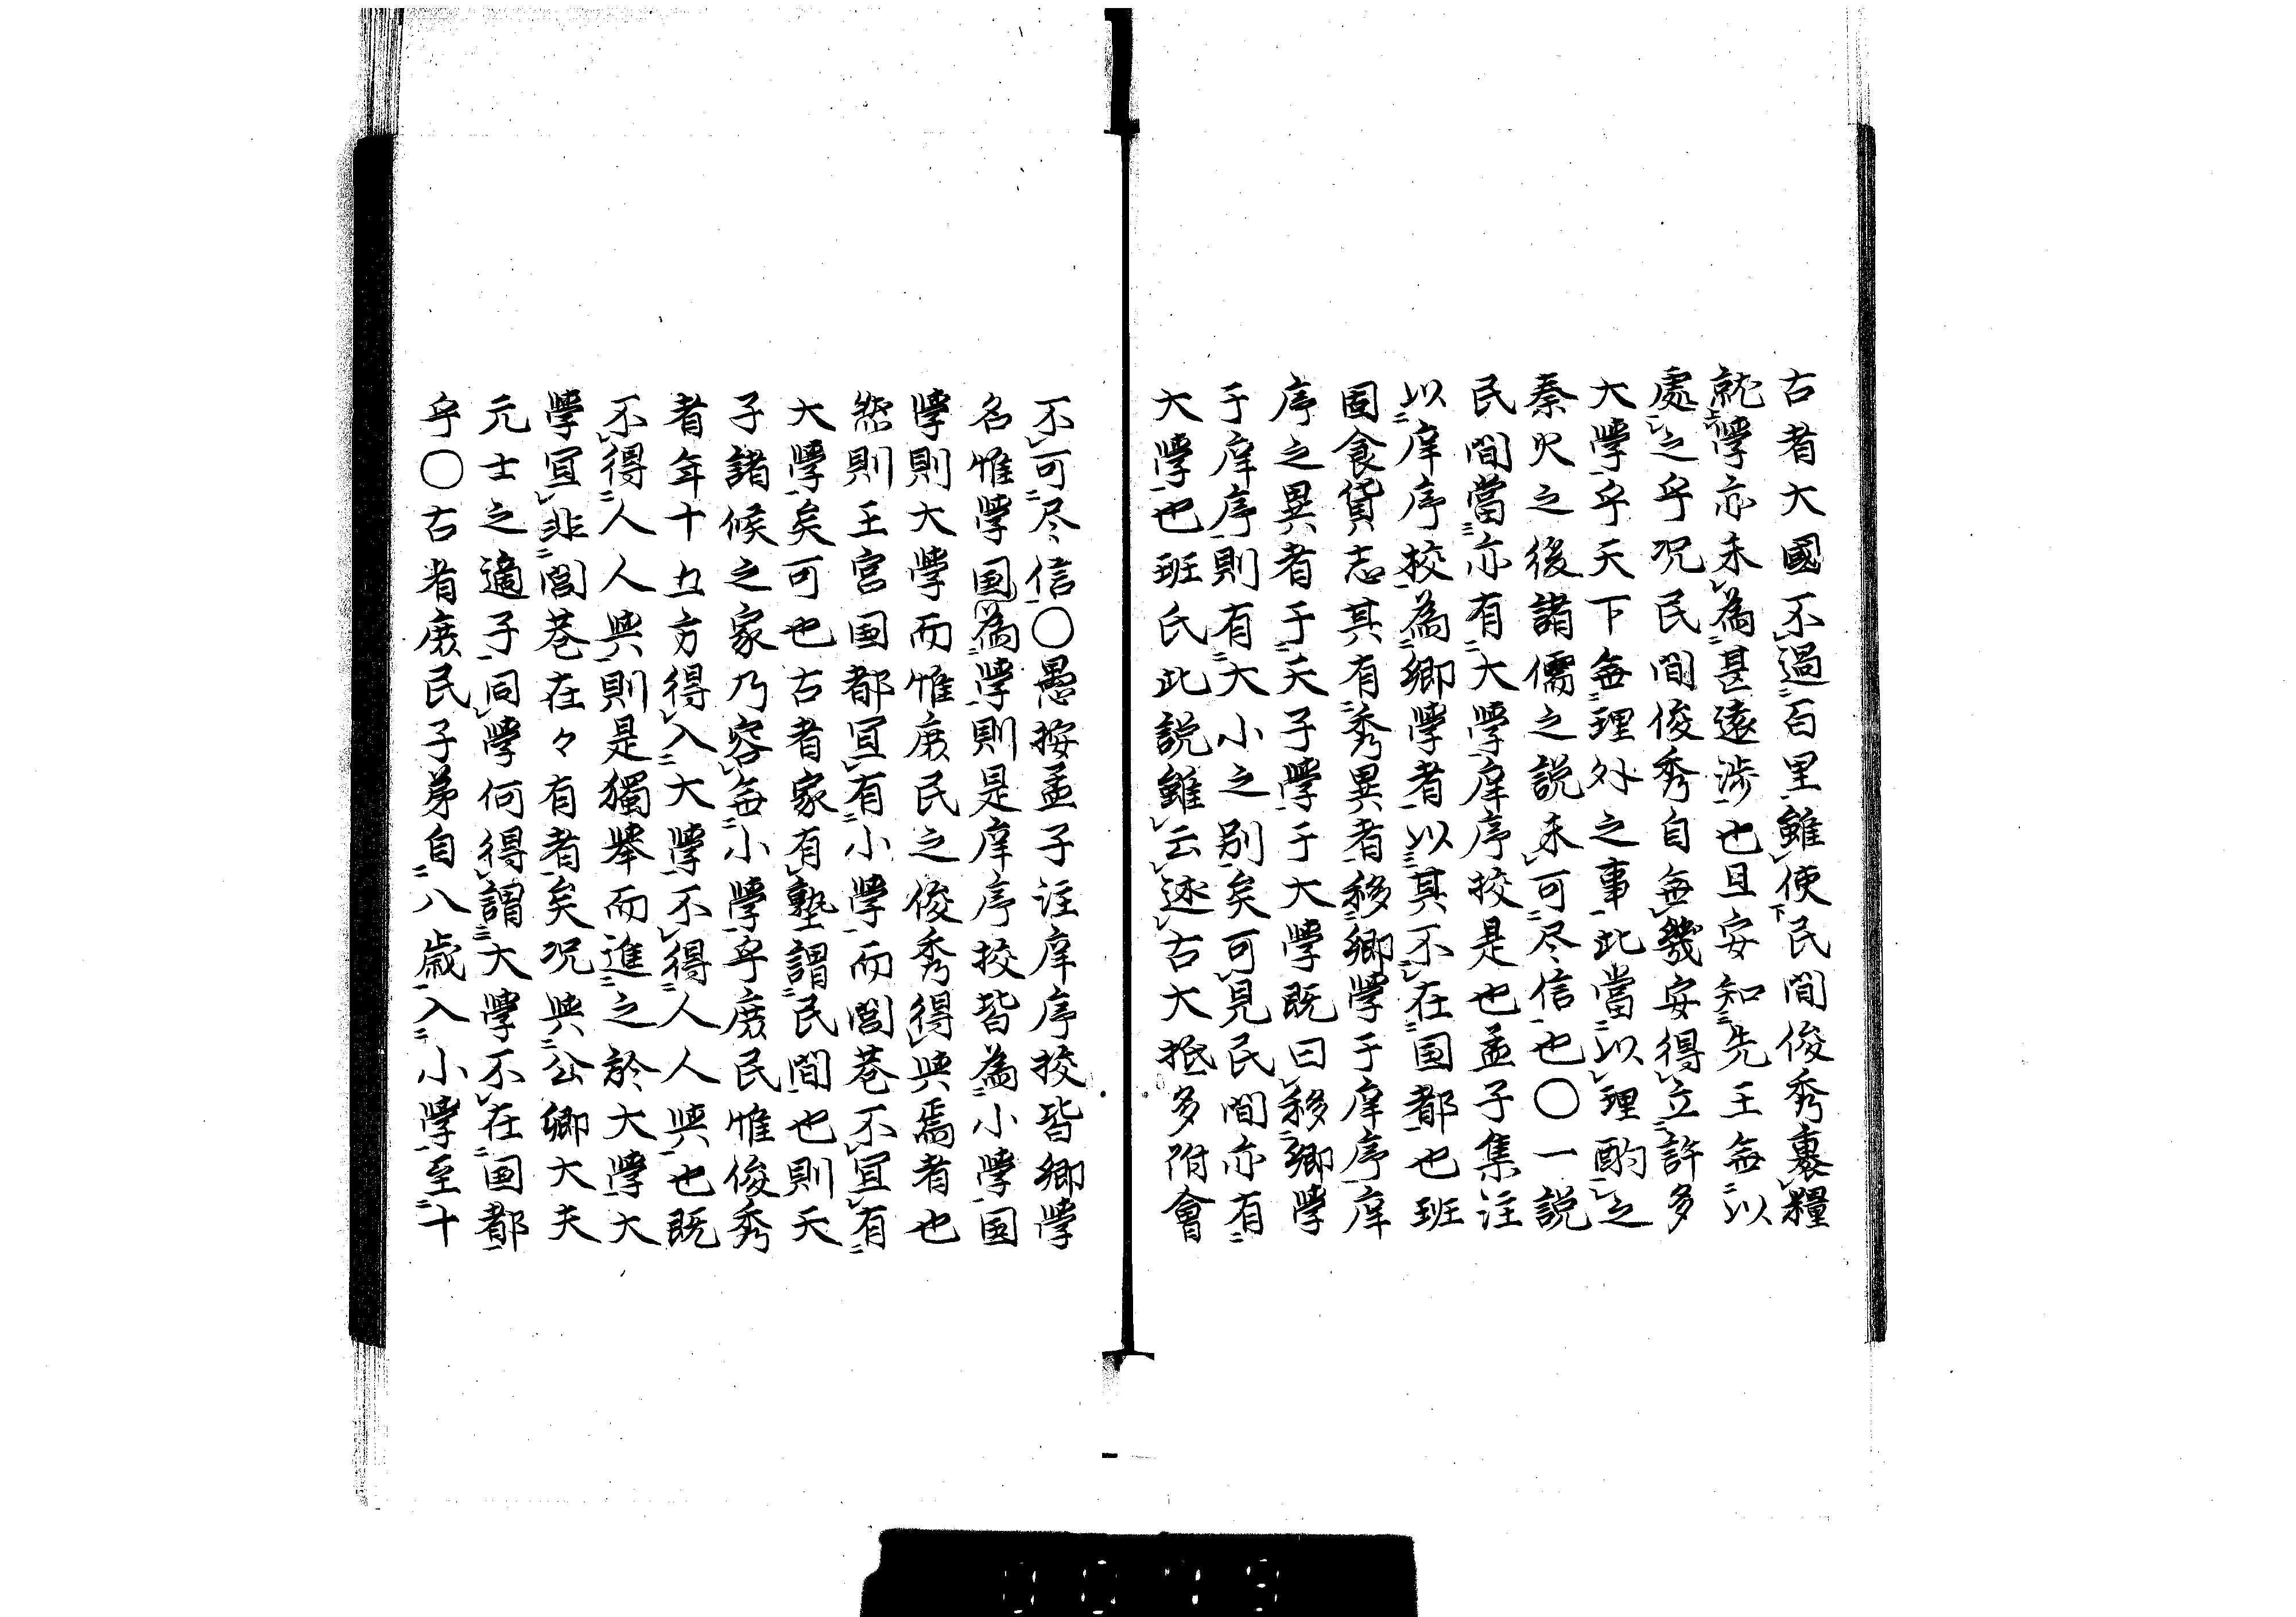 古者大國不過百里雖使民間俊秀裹糧
就學亦未為甚遠渉也且安知先王無以
處之乎况民間俊秀自無幾安得立許多
大學乎天下無理外之事此當以理酌之
秦火之後諸儒之説未可尽信也〇一説
民間當亦有大學庠序挍是也孟子集注
以庠序挍為鄉學者以其不在国都也班
固食貨志其有秀異者移鄉學于庠序庠
序之異者于天子學于大學既曰移鄉學
于庠序則有大小之别矣可見民間亦有
大學也班氏此説雖云述古大抵多附會
不可尽信〇愚按孟子注庠序挍皆鄉學
名惟學国為學則是庠序挍皆為小學国
學則大學而惟庶民之俊秀得與焉者也
然則王宮国都宜有小學而閭巷不宜有
大學矣可也古者家有塾謂民間也則天
子諸候之家乃容無小學乎庶民惟俊秀
者年十五方得入大學不得人人與也既
不得人人與則是獨舉而進之於大學大
學宜非閭巷在々有者矣况與公卿大夫
元士之適子同學何得謂大學不在国都
乎〇古者庶民子弟自八歳入小學至十